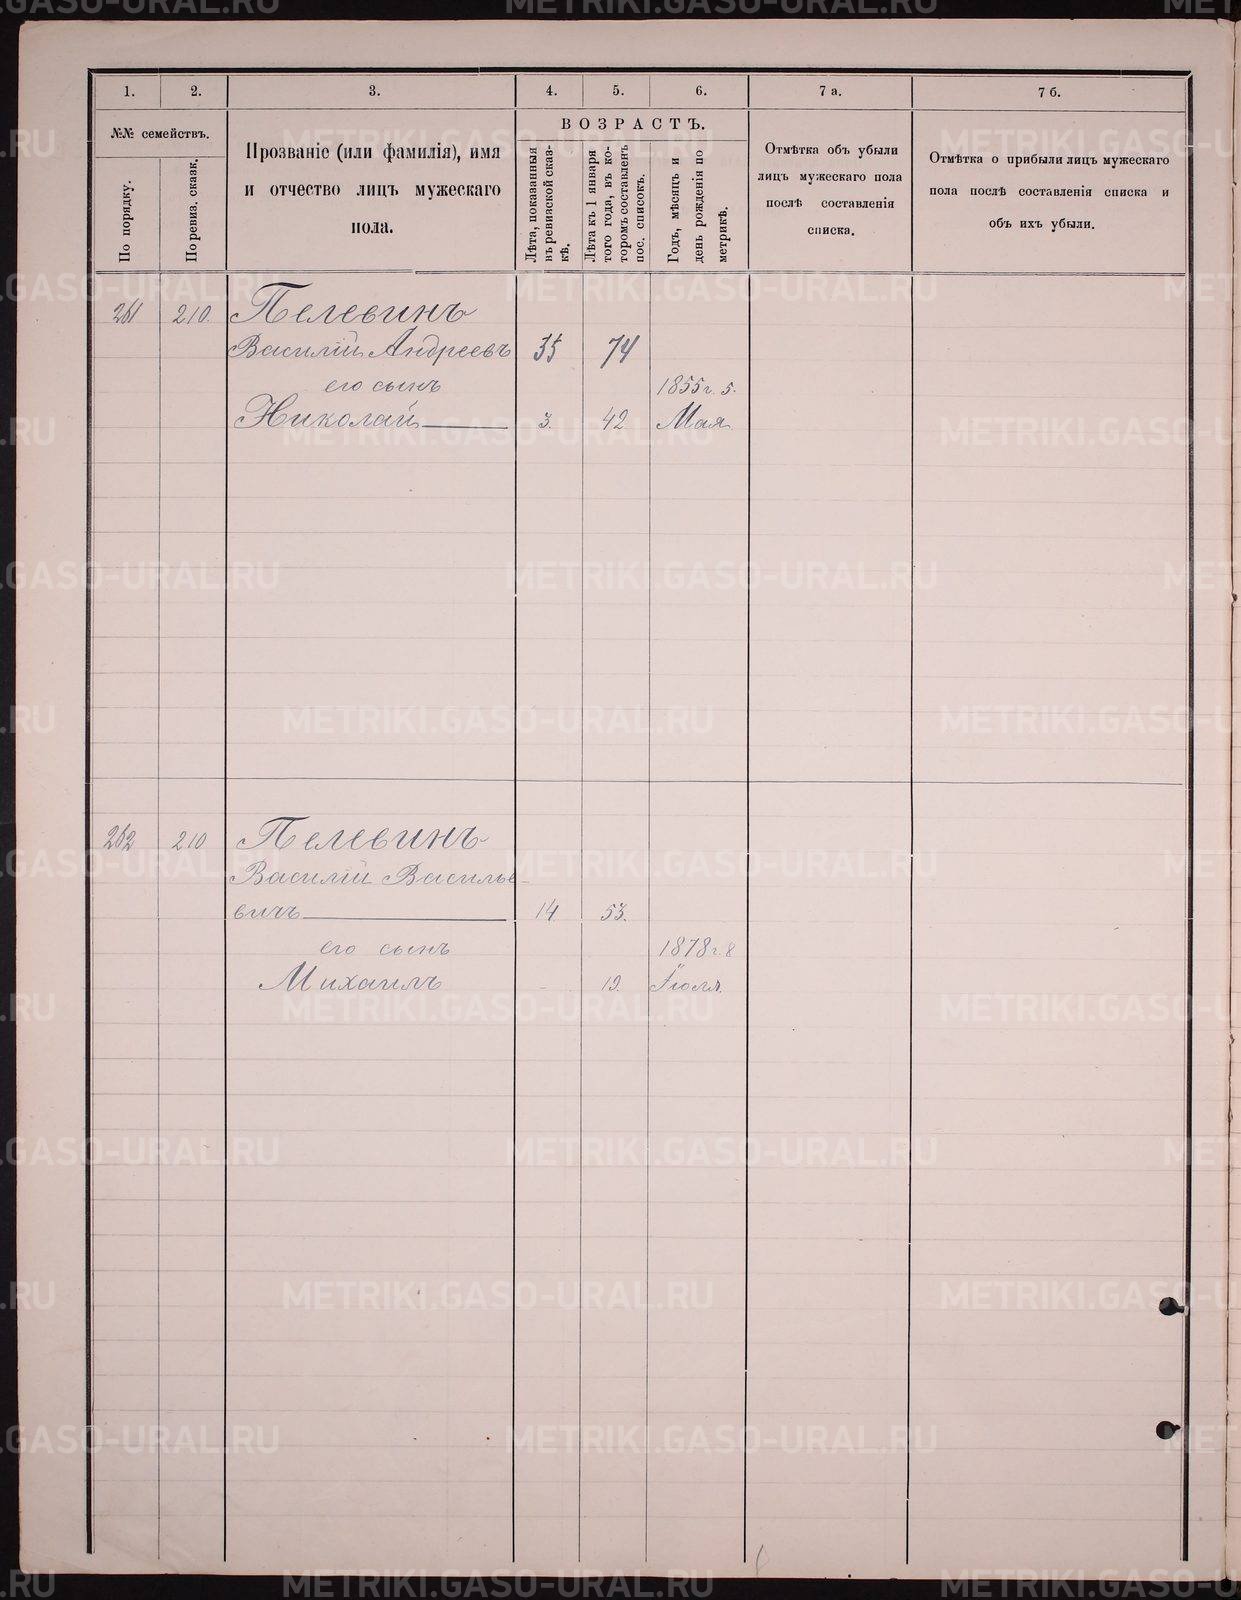 1.
2.
3.
4.
5.
6.
7 а.
7 б.
№№ семействъ.
По порядку.
По ревиз. сказк.
Прозваніе (или фамилія), имя
и отчество лицъ мужескаго
пола.
ВОЗРАСТЪ.
Лѣта, показанныя
въ ревизской сказ-
кѣ.
Лѣта къ 1 января
того года, въ ко-
торомъ составленъ
пос. списокъ.
Годъ, мѣсяцъ и
день рожденія по
метрикѣ.
Отмѣтка объ убыли
лицъ мужескаго пола
послѣ составленія
списка.
Отмѣтка о прибыли лицъ мужескаго
пола послѣ составленія списка и
объ ихъ убыли.
261 210. Пелевинъ
Василій Андреевъ 35 74
его сынъ 1855 г. 5.
Николай 3. 42 Мая.
262 210 Пелевинъ
Василій Василье-
вичъ 14 53.
его сынъ 1878 г. 8
Михаилъ - 19. Іюля.
METRIKI.GASO-URAL.RU